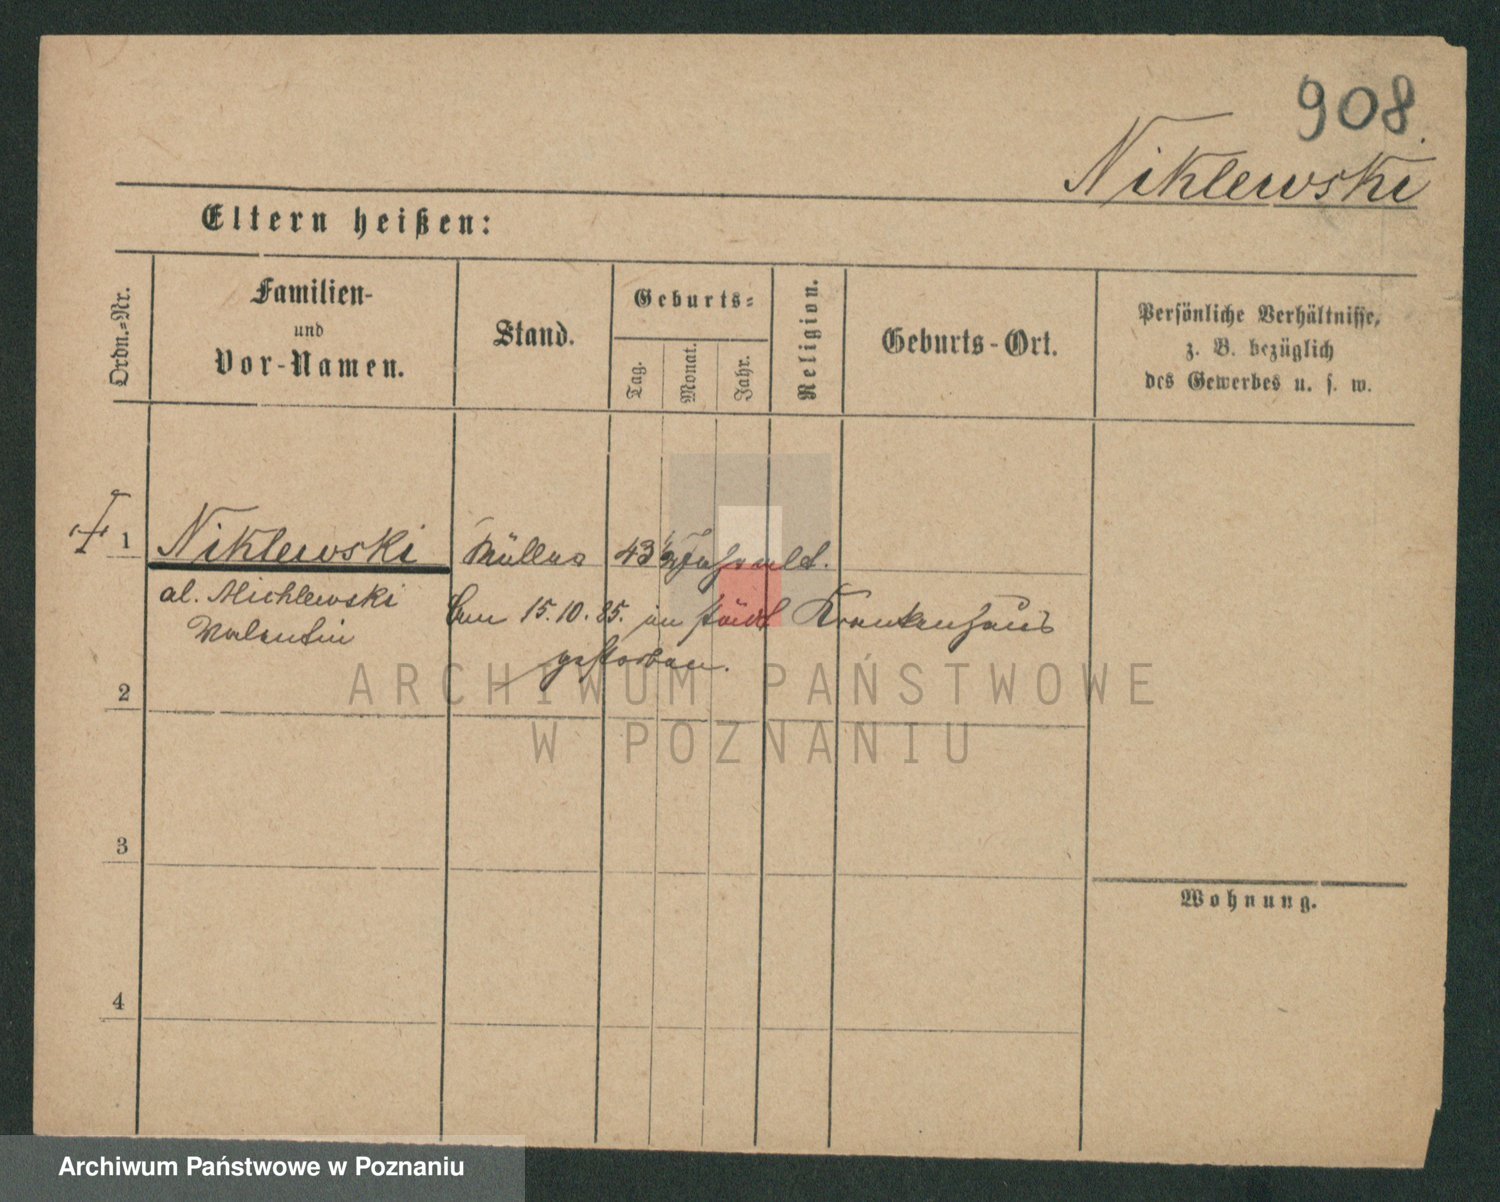 908.
Niklewski
Eltern heißen:
Ordn.=Nr.
Familien-
und
Vor-Namen.
Stand.
Geburts=
Tag.
Monat.
Jahr.
Religion.
Geburts-Ort.
Persönliche Verhältnisse,
z. B. bezüglich
des Gewerbes u. s. w.
1 Niklewski Müller 43 1/2 Jahr alt.
al. Michlewski
Valentin
Am 15.10.85. im städt Krankenhaus
gestorben.
2
3
4
Wohnung.
ARCHIWUM PAŃSTWOWE
W POZNANIU
Archiwum Państwowe w Poznaniu